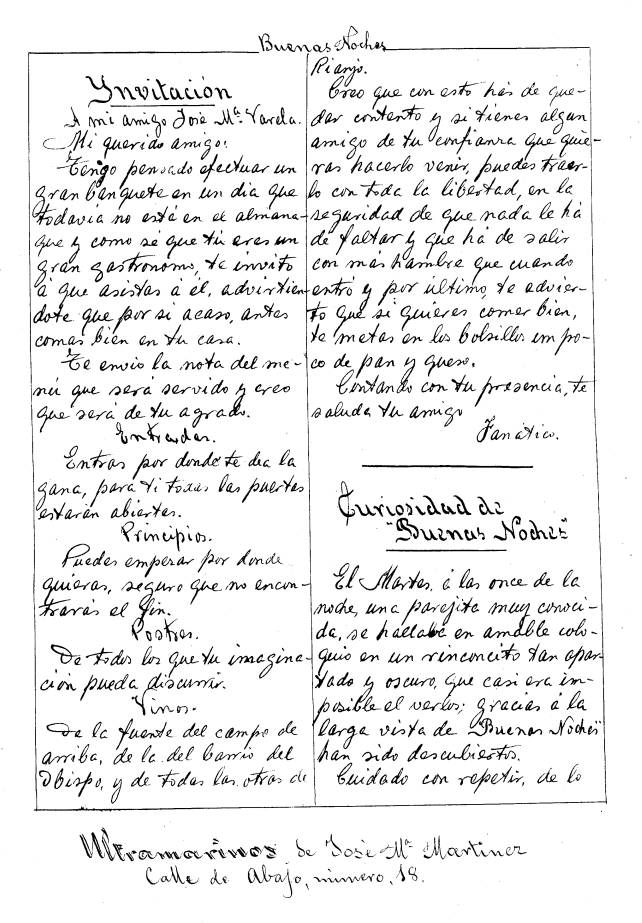 Buenas Noches
Ynvitación
A mi amigo José Mª. Varela.
Mi querido amigo:
Tengo pensado efectuar un
gran banquete en un dia que
todavia no está en el almana-
que y como sé que tú eres un
gran gastronomo, te invito
á que asistas á él, advirtien-
dote que por si acaso, antes
comas bien en tu casa.
Te envio la nota del me-
nú que será servido y creo
que será de tu agrado.
Entradas.
Entras por donde te dea la
gana, para ti todas las puertas
estarán abiertas.
Principios.
Puedes empezar por donde
quieras, seguro que no encon-
trarás el fin.
Postres.
De todos los que tu imagina-
ción pueda discurrir.
Vinos.
De la fuente del campo de
arriba, de la del barrio del
Obispo, y de todas las otras de
Rianjo.
Creo que con esto hás de que-
dar contento y si tienes algun
amigo de tu confianza que quie-
ras hacerlo venir, puedes traer-
lo con toda la libertad, en la
seguridad de que nada le há
de faltar y que há de salir
con más hambre que cuando
entró y por último, te advier-
to que si quieres comer bien,
te metas en los bolsillos un po-
co de pan y queso.
Contando con tu presencia, te
saluda tu amigo
Fanático.
Curiosidad de
"Buenas Noches"
El Martes, á las once de la
noche, una parejita muy conoci-
da, se hallaba en amable colo-
quio en un rinconcito tan apar-
tado y oscuro, que casi era im-
posible el verlos; gracias á la
larga vista de "Buenas Noches"
han sido descubiertos.
Cuidado con repetir, de lo
Ultramarinos de José Mª Martinez
Calle de Abajo, número, 18.